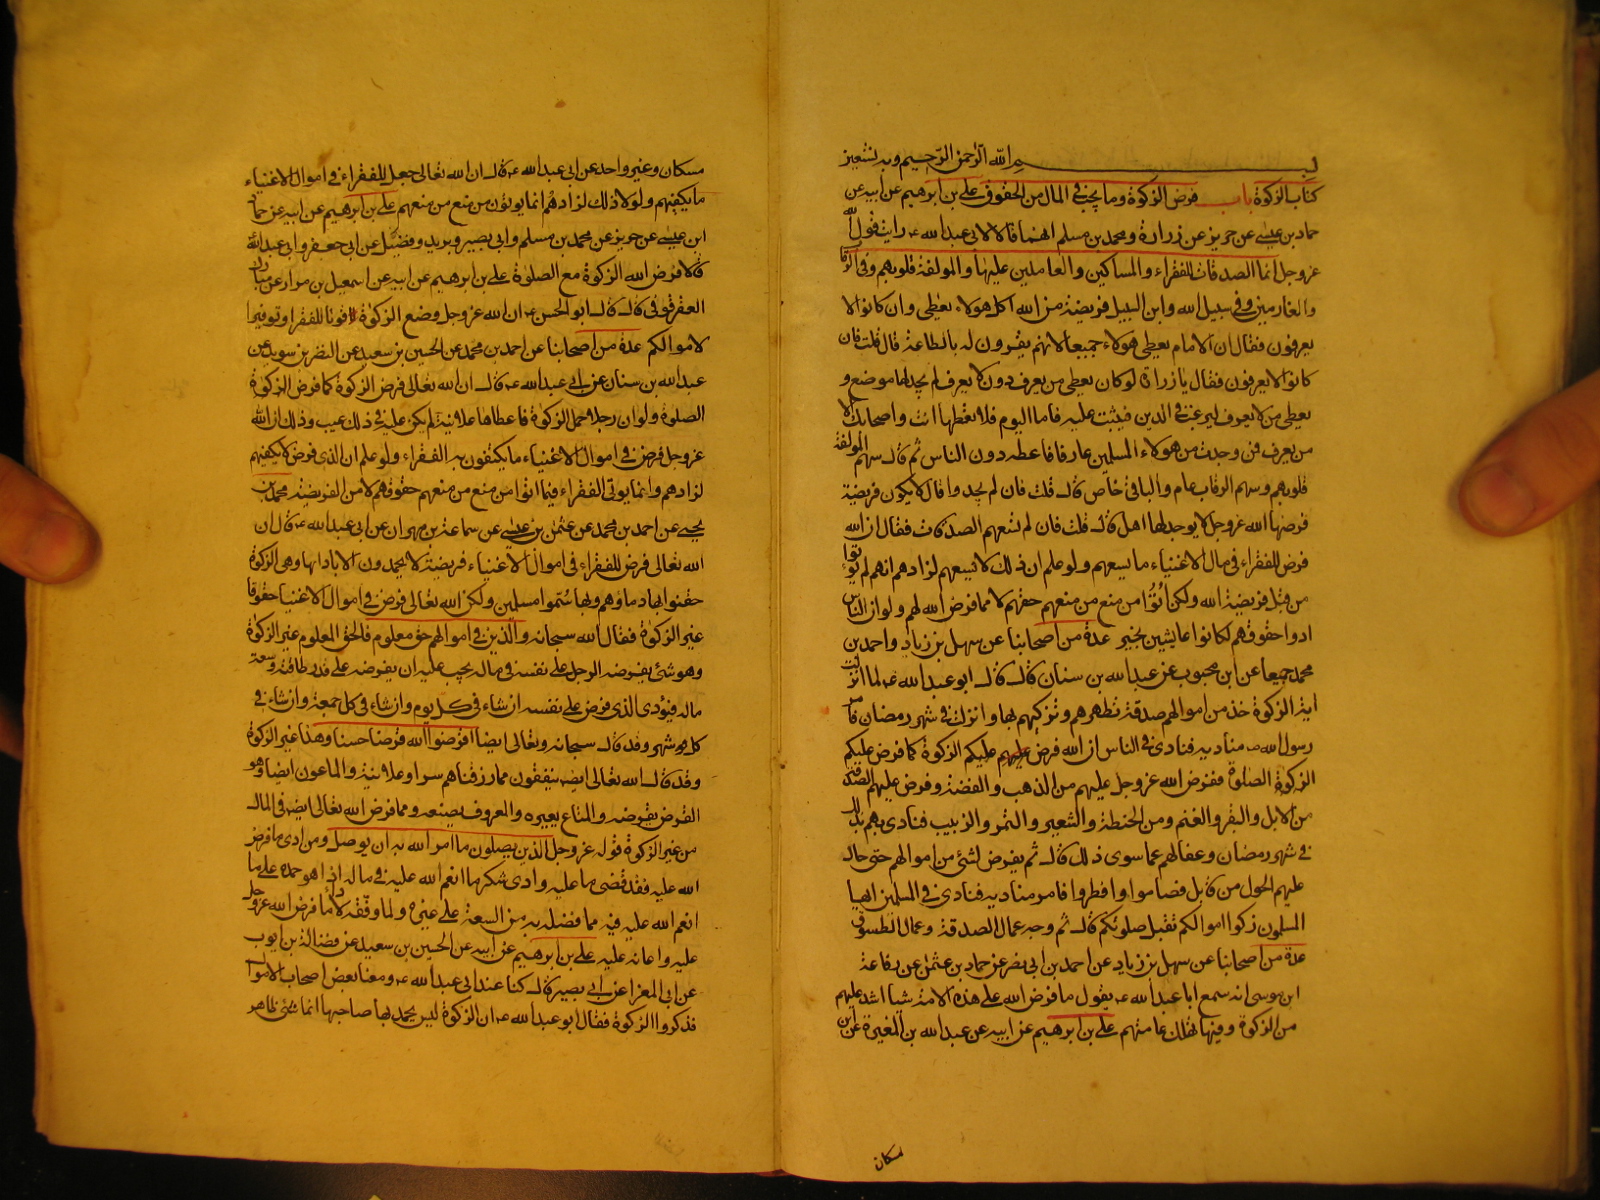 بسم الله الرحمن الرحيم وبه نستعين
كتاب الزكوة باب فرض الزكوة وما يجب في المال من الحقوق علي بن ابرهيم عن ابيه عن
حماد بن عيسى عن حريز عن زرارة ومحمد بن مسلم انهما قالا لابي عبد الله عه رايت قول الله
عز وجل انما الصدقات للفقراء والمساكين والعاملين عليها والمولفة قلوبهم وفي الرقاب
والغارمين وفي سبيل الله وابن السبيل فريضة من الله اكل هولاء يعطى وان كانوا لا
يعرفون فقال ان الامام يعطي هولاء جميعا لانهم يقرون له بالطاعة قال قلت فان
كانوا لا يعرفون فقال يا زرارة لو كان يعطي من يعرف دون من لا يعرف لم يجد لها موضع و
يعطي من لا يعرف ليرغب في الدين فيثبت عليه فاما اليوم فلا تعطها انت واصحابك الا
من يعرف فمن وجدت من هولاء المسلمين عارفا فاعطه دون الناس ثم قال سهم المولفة
قلوبهم وسهم الرقاب عام والباقي خاص قال قلت فان لم يجدوا قال لا يكون فريضة
فرضها الله عز وجل لا يوجد لها اهل قال قلت فان لم تسعهم الصدقات فقال ان الله
فرض للفقراء في مال الاغنياء ما يسعهم ولو علم ان ذلك لا يسعهم لزادهم انهم لم يؤتوا
من قبل فريضة الله ولكن أُتُوا من منع من منعهم حقهم لا مما فرض الله لهم ولو ان الناس
ادوا حقوقهم لكانوا عايشين بخير عدة من اصحابنا عن سهل بن زياد واحمد بن
محمد جميعا عن ابن محبوب عن عبد الله بن سنان قال قال ابو عبد الله عه لما انزلت
اية الزكوة خذ من اموالهم صدقة تطهرهم وتزكيهم بها وانزلت في شهر رمضان فامر
رسول الله صه مناديه فنادى في الناس ان الله فرض عليكم الزكوة كما فرض عليكم
الصلوة ففرض الله عز وجل عليهم من الذهب والفضة وفرض عليهم الصدقة
من الابل والبقر والغنم ومن الحنطة والشعير والتمر والزبيب فنادى بهم بذلك
في شهر رمضان وعفا لهم عما سوى ذلك قال ثم لم يفرض لشئ من اموالهم حتى حال
عليهم الحول من قابل فصاموا وافطروا فامر مناديه فنادى في المسلمين ايها
المسلمون زكوا اموالكم تقبل صلوتكم قال ثم وجه عمال الصدقة وعمال الطسوق
عدة من اصحابنا عن سهل بن زياد عن احمد بن ابي نصر عن حماد بن عثمن عن رفاعة
ابن موسى انه سمع ابا عبد الله عه يقول ما فرض الله على هذه الامة شيئا اشد عليهم
من الزكوة وفيها تهلك عامتهم علي بن ابرهيم عن ابيه عن عبد الله بن المغيرة عن ابن
مسكان
مسكان وغير واحد عن ابي عبد الله عه قال ان الله تعالى جعل للفقراء في اموال الاغنياء
ما يكفيهم ولولا ذلك لزادهم انما يوتون من منع من منعهم علي بن ابرهيم عن ابيه عن حماد
ابن عيسى عن حريز عن محمد بن مسلم وابي بصير وبريد وفضيل عن ابي جعفر وابي عبد الله
قالا فرض الله الزكوة مع الصلوة علي بن ابرهيم عن ابيه عن اسمعيل بن مرار عن مبارك
العقرقوفي قال قال ابو الحسن عه ان الله عز وجل وضع الزكوة قوتا للفقرا وتوفيرا
لاموالكم عدة من اصحابنا عن احمد بن محمد عن الحسين بن سعيد عن النضر بن سويد عن
عبد الله بن سنان عن ابي عبد الله عه قال ان الله تعالى فرض الزكوة كما فرض الزكوة
الصلوة ولو ان رجلا حمل الزكوة فاعطاها علانية لم يكن عليه في ذلك عيب وذلك ان الله
عز وجل فرض في اموال الاغنياء ما يكتفون به الفقراء ولو علم ان الذي فرض لا يكفيهم
لزادهم وانما يوتى الفقراء فيما اتوا من منع من منعهم حقوقهم لا من الفريضة محمد بن
يحيى عن احمد بن محمد عن عثمن بن عيسى عن سماعة بن مهران عن ابي عبد الله عه قال ان
الله تعالى فرض للفقراء في اموال الاغنياء فريضة لا يحمدون الا بادائها وهي الزكوة
حقنوا بها دماؤهم وبها سُمّوا مسلمين ولكن الله تعالى فرض في اموال الاغنيا حقوقا
غير الزكوة فقال الله سبحانه والذين في اموالهم حق معلوم فالحق المعلوم غير الزكوة
وهو شئ يفرضه الرجل على نفسه في ماله يجب عليه ان يفرضه على قدر طاقته وسعة
ماله فيؤدي الذي فرض على نفسه ان شاء في كل يوم وان شاء في كل جمعة وان شاء في
كل شهر وقد قال سبحانه وتعالى ايضا اقرضوا الله قرضا حسنا وهذا غير الزكوة
وقد قال الله تعالى ايضه ينفقون مما رزقناهم سرا وعلانية والماعون ايضا وهو
القرض يقرضه والمتاع يعيره والمعروف يصنعه ومما فرض الله تعالى ايضه في المال
من غير الزكوة قوله عز وجل الذين يصلون ما امر الله به ان يوصل ومن ادى ما فرض
الله عليه فقد قضى ما عليه وادى شكر ما انعم الله عليه في ماله اذا هو حمده على ما
انعم الله عليه فيه مما فضله به من السعة على غيره ولما وفقه لاداء ما فرض الله عز وجل
عليه واعانه عليه علي بن ابرهيم عن ابيه عن الحسين بن سعيد عن فضالة بن ايوب
عن ابي المغرا عن ابي بصير قال كنا عند ابي عبد الله عه ومعنا بعض اصحاب الاموال
فذكروا الزكوة فقال ابو عبد الله عه ان الزكوة ليس يحمد بها صاحبها انما شئ ظاهر